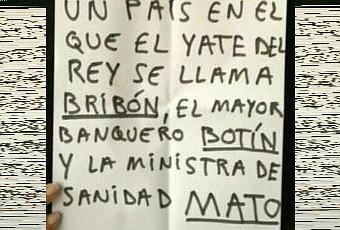 UN PAÍS EN EL
QUE EL YATE DEL
REY SE LLAMA
BRIBÓN, EL MAYOR
BANQUERO BOTÍN
Y LA MINISTRA DE
SANIDAD MATO